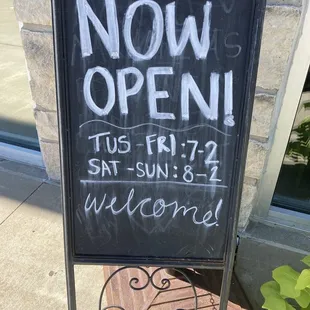 NOW
OPEN!
TUS-FRI:7-2
SAT-SUN:8-2
welcome!